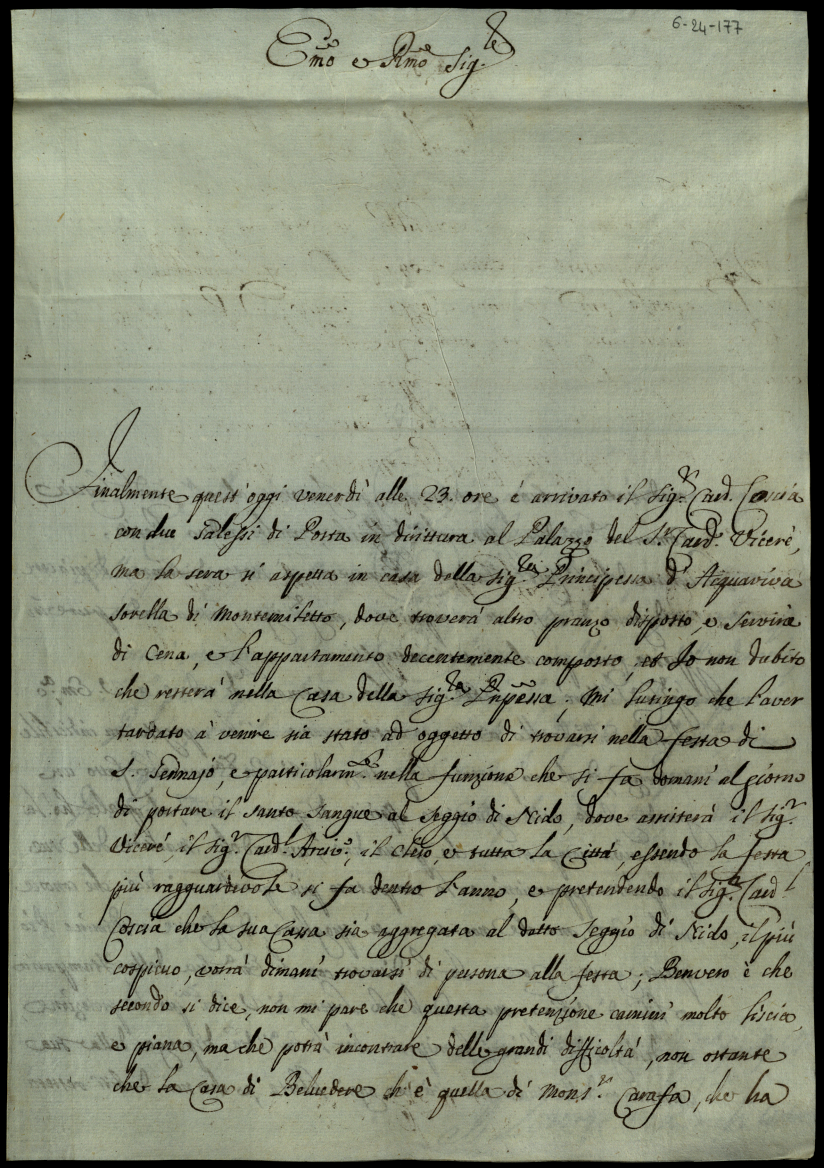 6-24-177
Emo e Rmo Sig.re
Finalmente quest'oggi venerdì alle 23. ore è arrivato il Sig.r Card. Coscia
con due Calessi di Posta in dirittura al Palazzo del S.r Card. Viceré,
ma la sera si aspetta in casa della Sig.ra Principessa d'Acquaviva
sorella di Montemiletto, dove troverà altro pranzo disposto, e
di Cena, e l'appartamento decentemente composto, et Io non dubito
che resterà nella Casa della Sig.ra Prpessa; Mi lusingo che l'aver
tardato à venire sia stato ad oggetto di trovarsi nella festa di
S. Gennajo, e particolarm.te nella funzione che si fa domani al giorno
di portare il santo sangue al Seggio di Nido, dove assisterà il Sig.r
Viceré, il Sig.r Card.l Arciv.o, il Clero, e tutta la Città, essendo la festa
più ragguardevole si fa dentro l'anno, e pretendendo il Sig.r Card.l
Coscia che la sua Casa sia aggregata al detto Seggio di Nido, il più
cospicuo, vorrà dimani trovarsi di persona alla festa; Benvero è che
secondo si dice, non mi pare che questa pretenzione camini molto liscia,
e piana, ma che potrà incontrare delle grandi difficoltà, non ostante
che la Casa di Belvedere ch'è quella di Mons.r Carafa, che ha